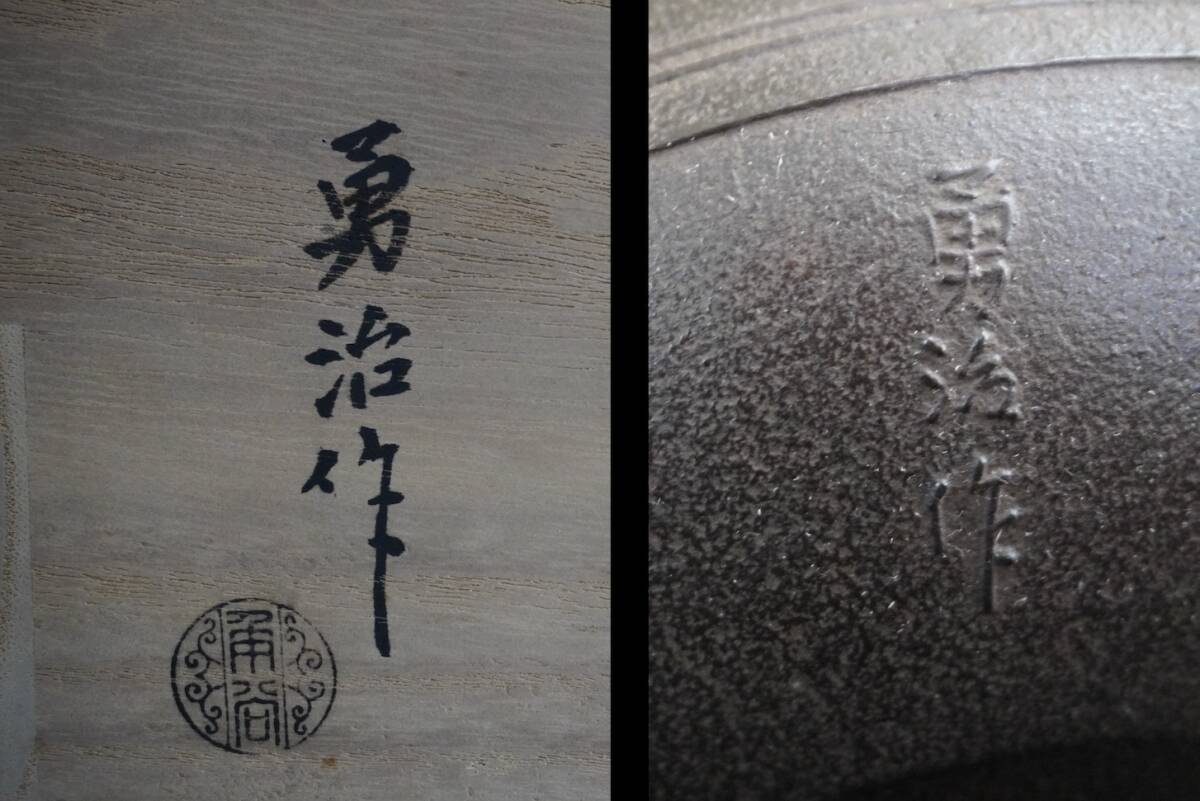 勇治作
勇治作